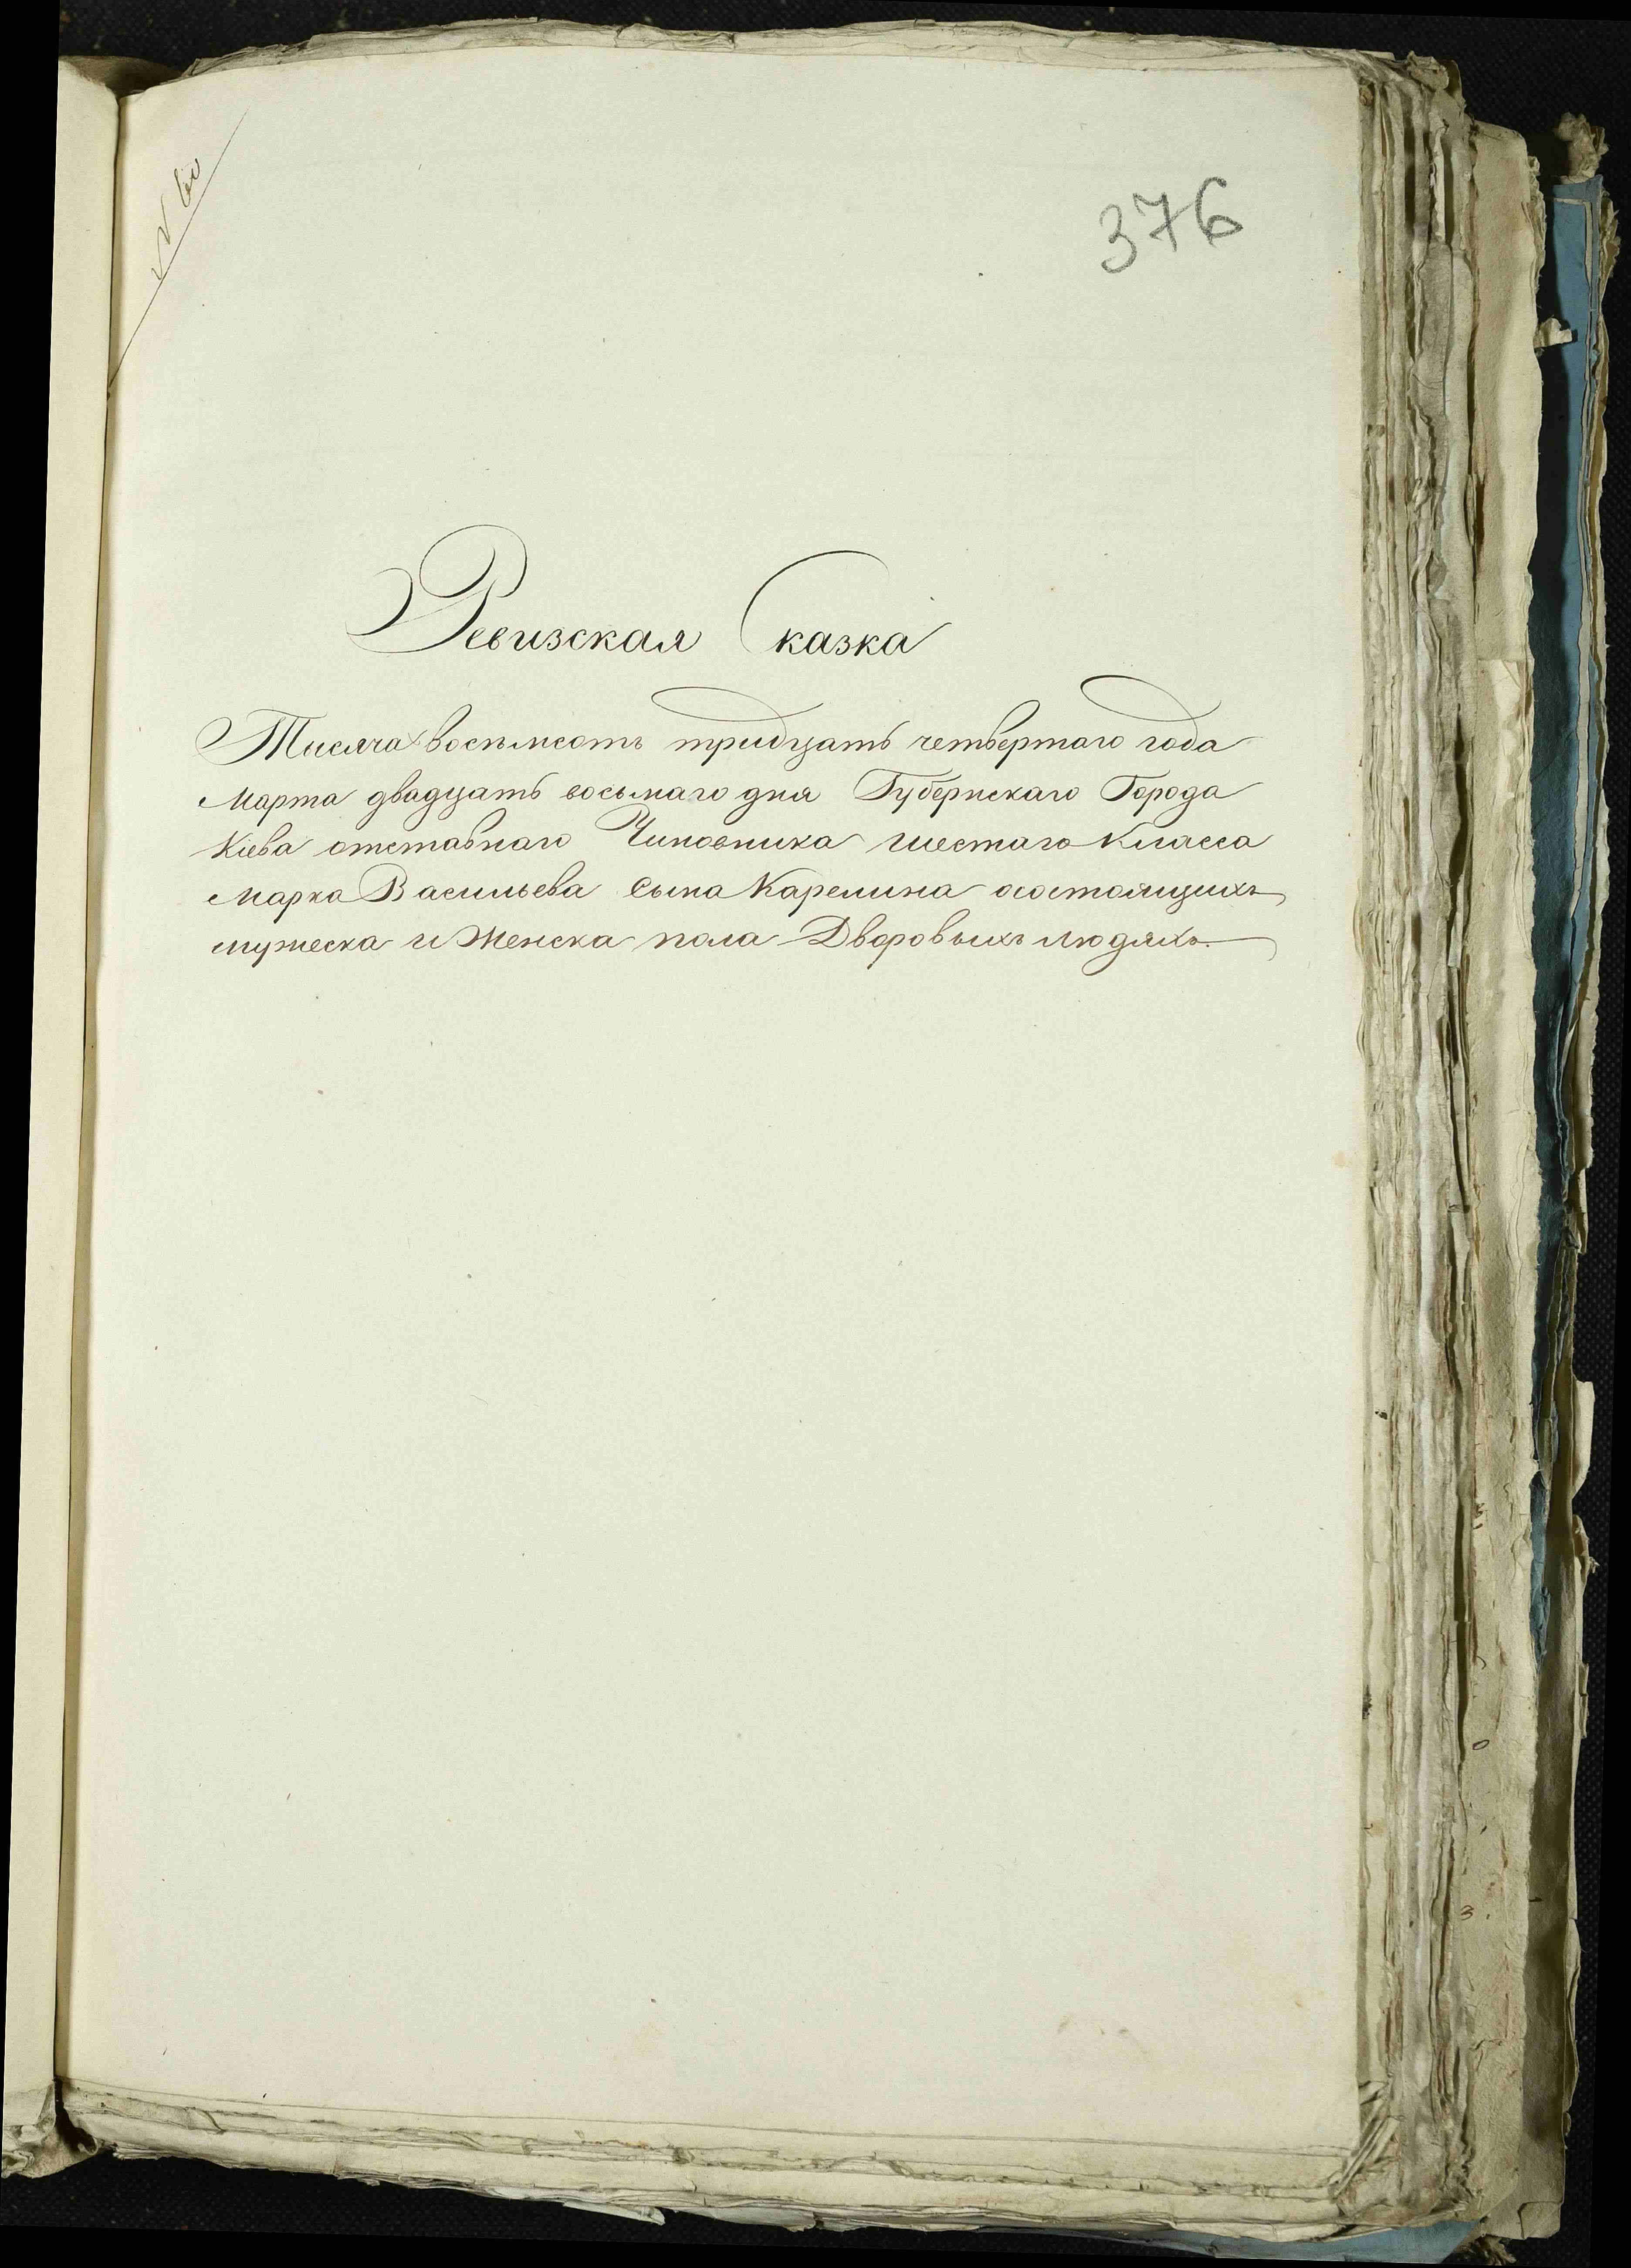 N 60
376
Ревизская Сказка
Тисяча восемсотъ тридцать четвертаго года
Марта двадцать восьмаго дня Губернскаго Города
Кіева отставнаго Чиновника шестаго Класса
Марка Васильева Сына Карелина осостоящихъ
мужеска и Женска пола Дворовыхъ людяхъ.